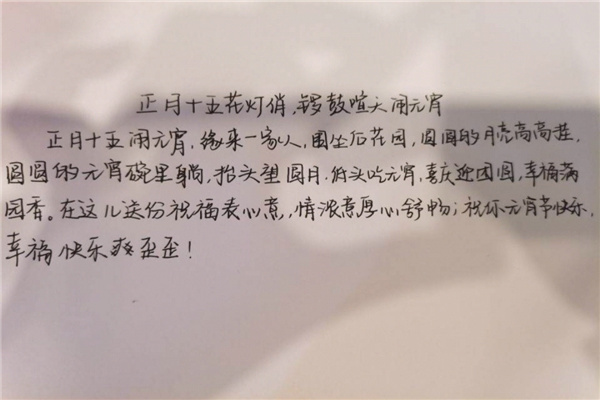 正月十五花灯俏,锣鼓喧天闹元宵
正月十五闹元宵,缘来一家人,围坐后花园,圆圆的月亮高高挂,
圆圆的元宵碗里躺,抬头望圆月,低头吃元宵,喜庆迎团圆,幸福满
园香。在这儿送份祝福表心意,情浓意厚心舒畅;祝你元宵节快乐,
幸福快乐爽歪歪!